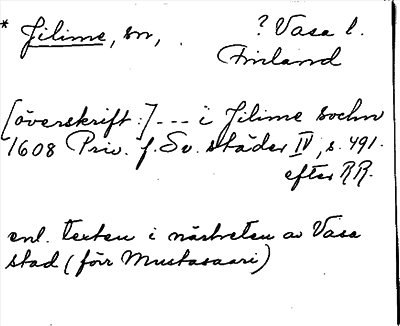 * Jilime, sn, ? Vasa l.
Finland
[överskrift:] --- i Jilime sochn
1608 Priv. f. Sv. städer IV, s. 491.
efter RR.
enl. texten i närheten av Vasa
stad (förr Mustasaari)